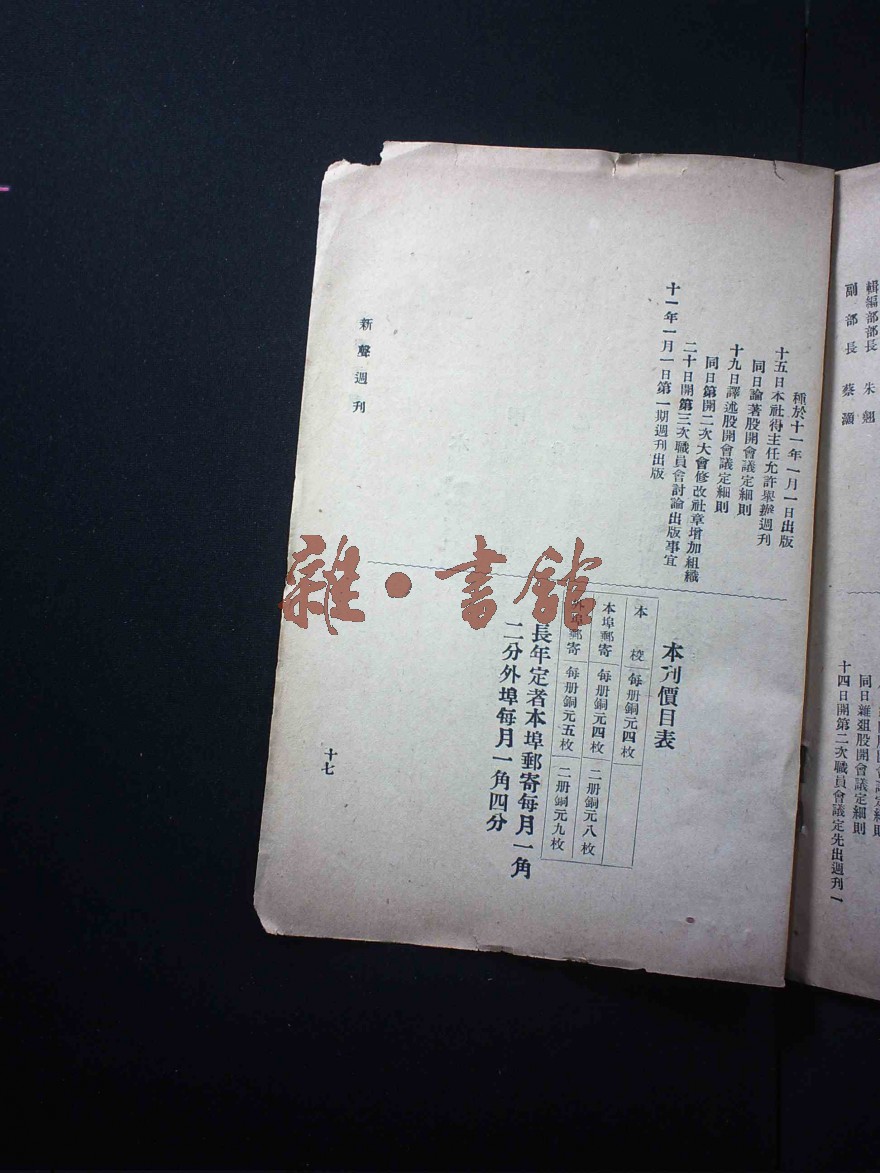 輯編部部長　朱翹
副部長　蔡灝
同日雜爼股開會議定細則
十四日開第二次職員會議定先出週刊一
種於十一年一月一日出版
十五日本社得主任允許舉辦週刊
同日論著股開會議定細則
十九日譯述股開會議定細則
同日第開二次大會修改社章增加組織
二十日開第三次職員會討論出版事宜
十一年一月一日第一期週刊出版
本刋價目表
本校　每册銅元四枚
本埠郵寄　每册銅元四枚　二册銅元八枚
外埠郵寄　每册銅元五枚　二册銅元九枚
長年定者本埠郵寄每月一角
二分外埠每月一角四分
新聲週刊
十七
雜·書館